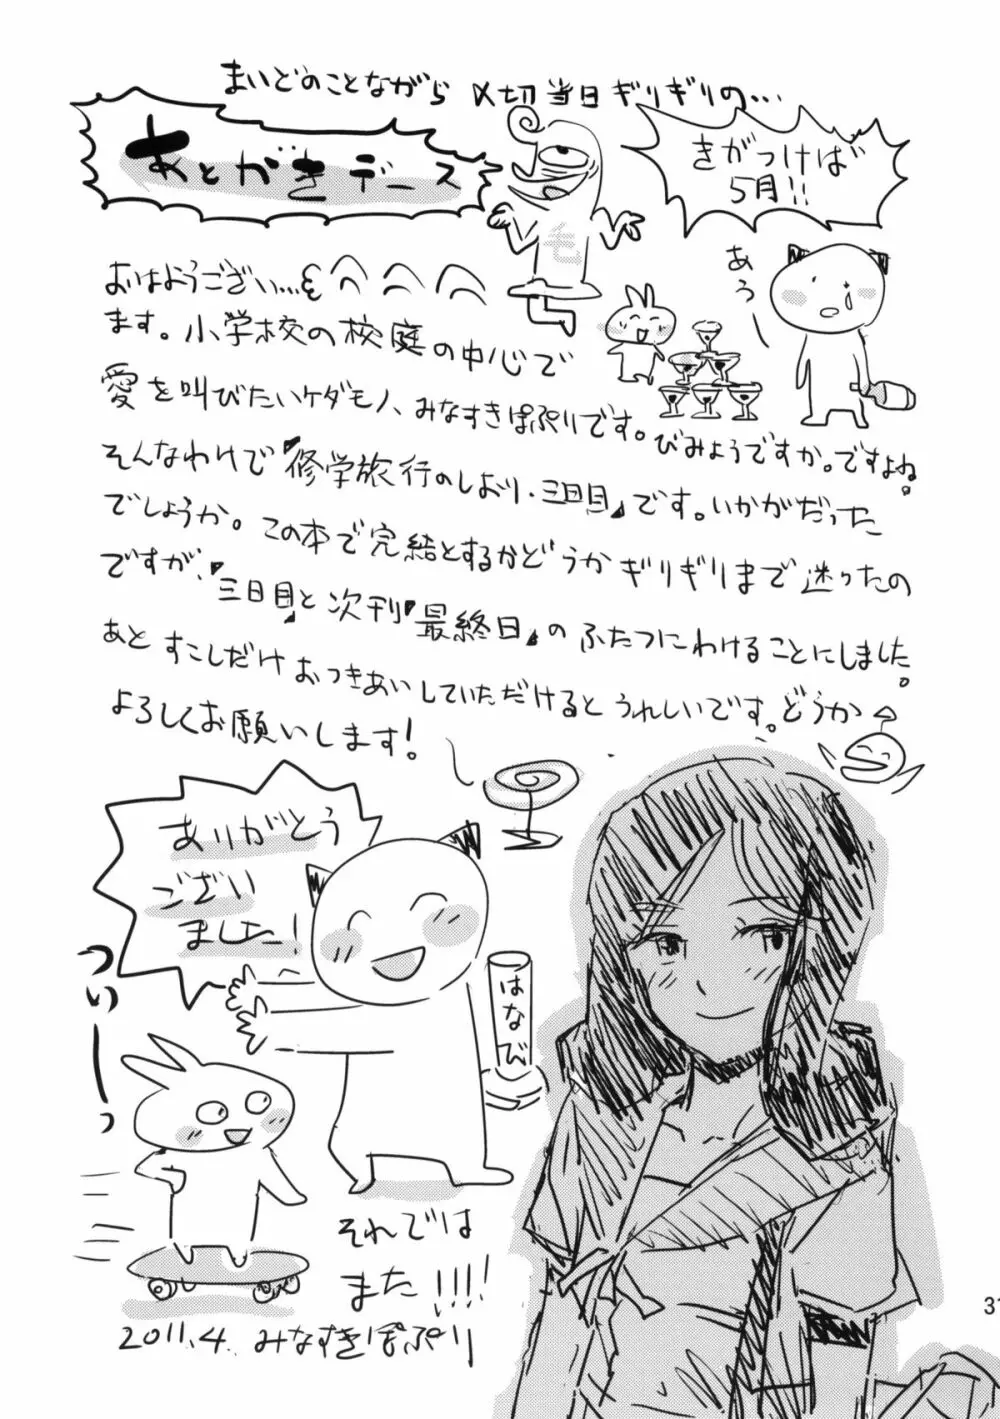 まいどのことながら 〆切当日ギリギリの…
あとがきデース
きがつけば
5月!!
あうー
毛
おはようござい…
ます。小学校の校庭の中心で
愛を叫びたいケダモノ、みなすきぽぷりです。びみょうですか。ですよね。
そんなわけで『修学旅行のしおり・三日目』です。いかがだった
でしょうか。この本で完結とするかどうかギリギリまで迷ったの
ですが、『三日目』と次刊『最終日』のふたつにわけることにしました。
あとすこしだけおつきあいしていただけるとうれしいです。どうか
よろしくお願いします!
ありがとう
ござい
ました!
ついーっ
はなび
それでは
また!!!!
2011.4. みなすきぽぷり